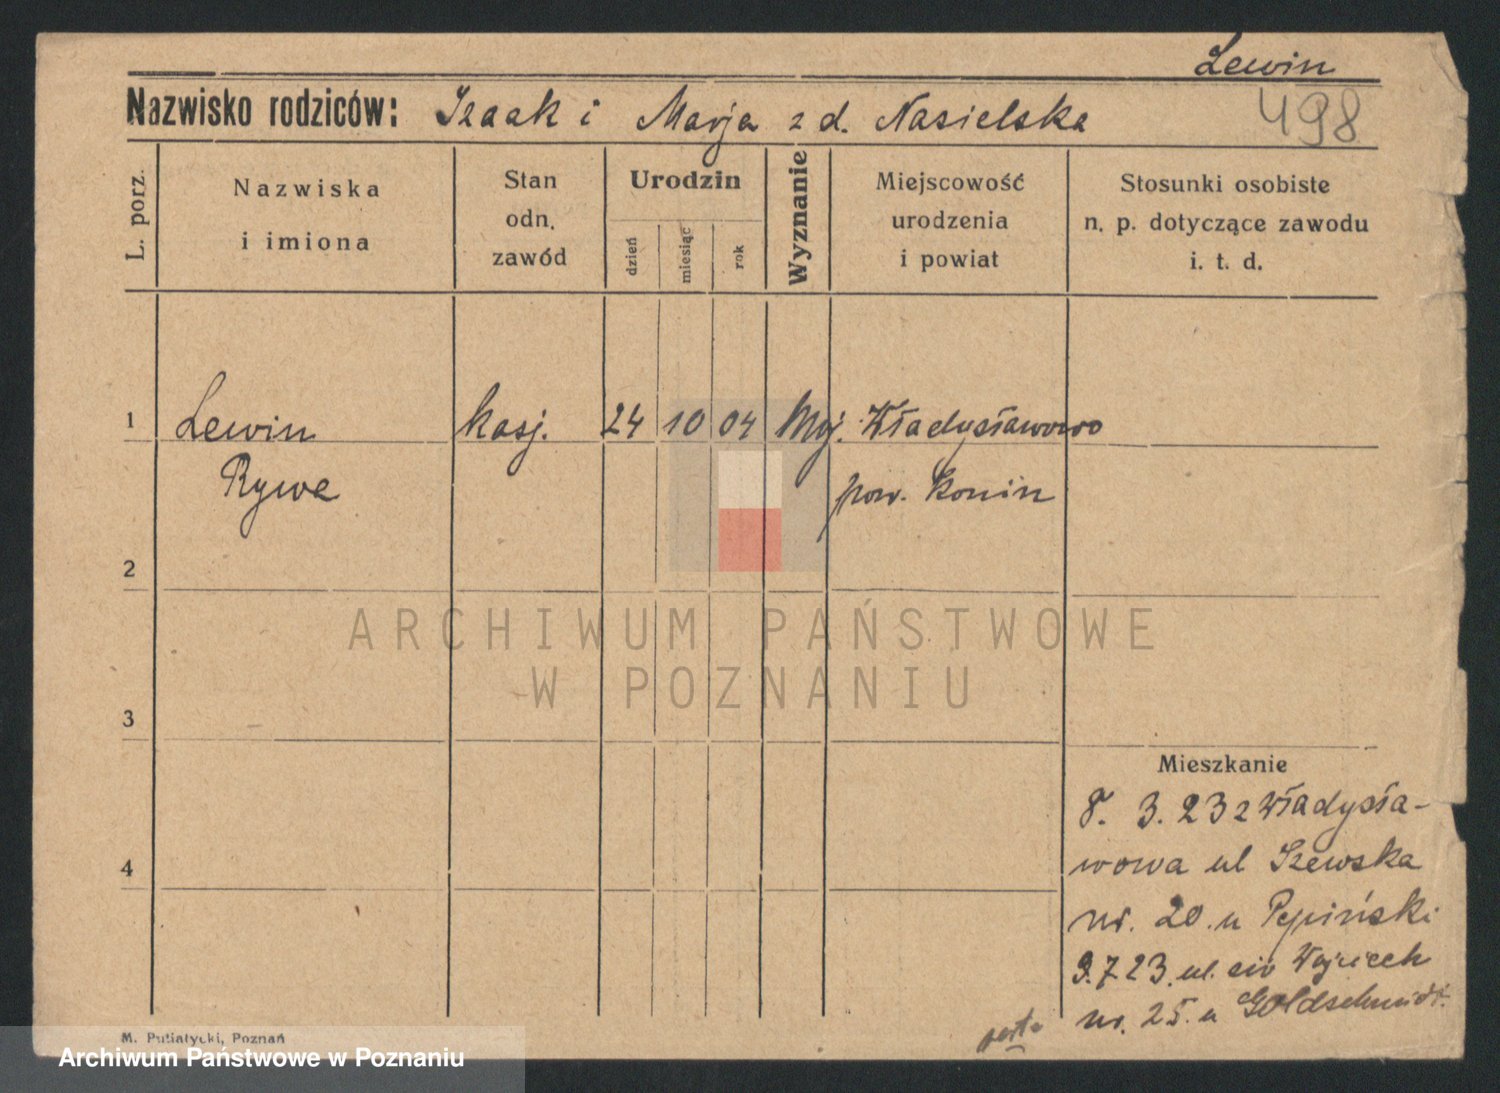 Lewin
Nazwisko rodziców: Izaak i Marja z d. Nasielska
498
L. porz.
Nazwiska
i imiona
Stan
odn.
zawód
Urodzin
dzień
miesiąc
rok
Wyznanie
Miejscowość
urodzenia
i powiat
Stosunki osobiste
n. p. dotyczące zawodu
i. t. d.
1 Lewin kasj. 24 10 04 Moj. Władysławowo
Rywe pow. Konin
2
3
4
ARCHIWUM PAŃSTWOWE
W POZNANIU
Mieszkanie
8. 3. 23 z Władysła-
wowa ul Szewska
nr. 20. u Pepiński
9.7.23. ul. św Wojciech
nr. 25. u Goldschmidt
M. Putiatycki, Poznań
Archiwum Państwowe w Poznaniu